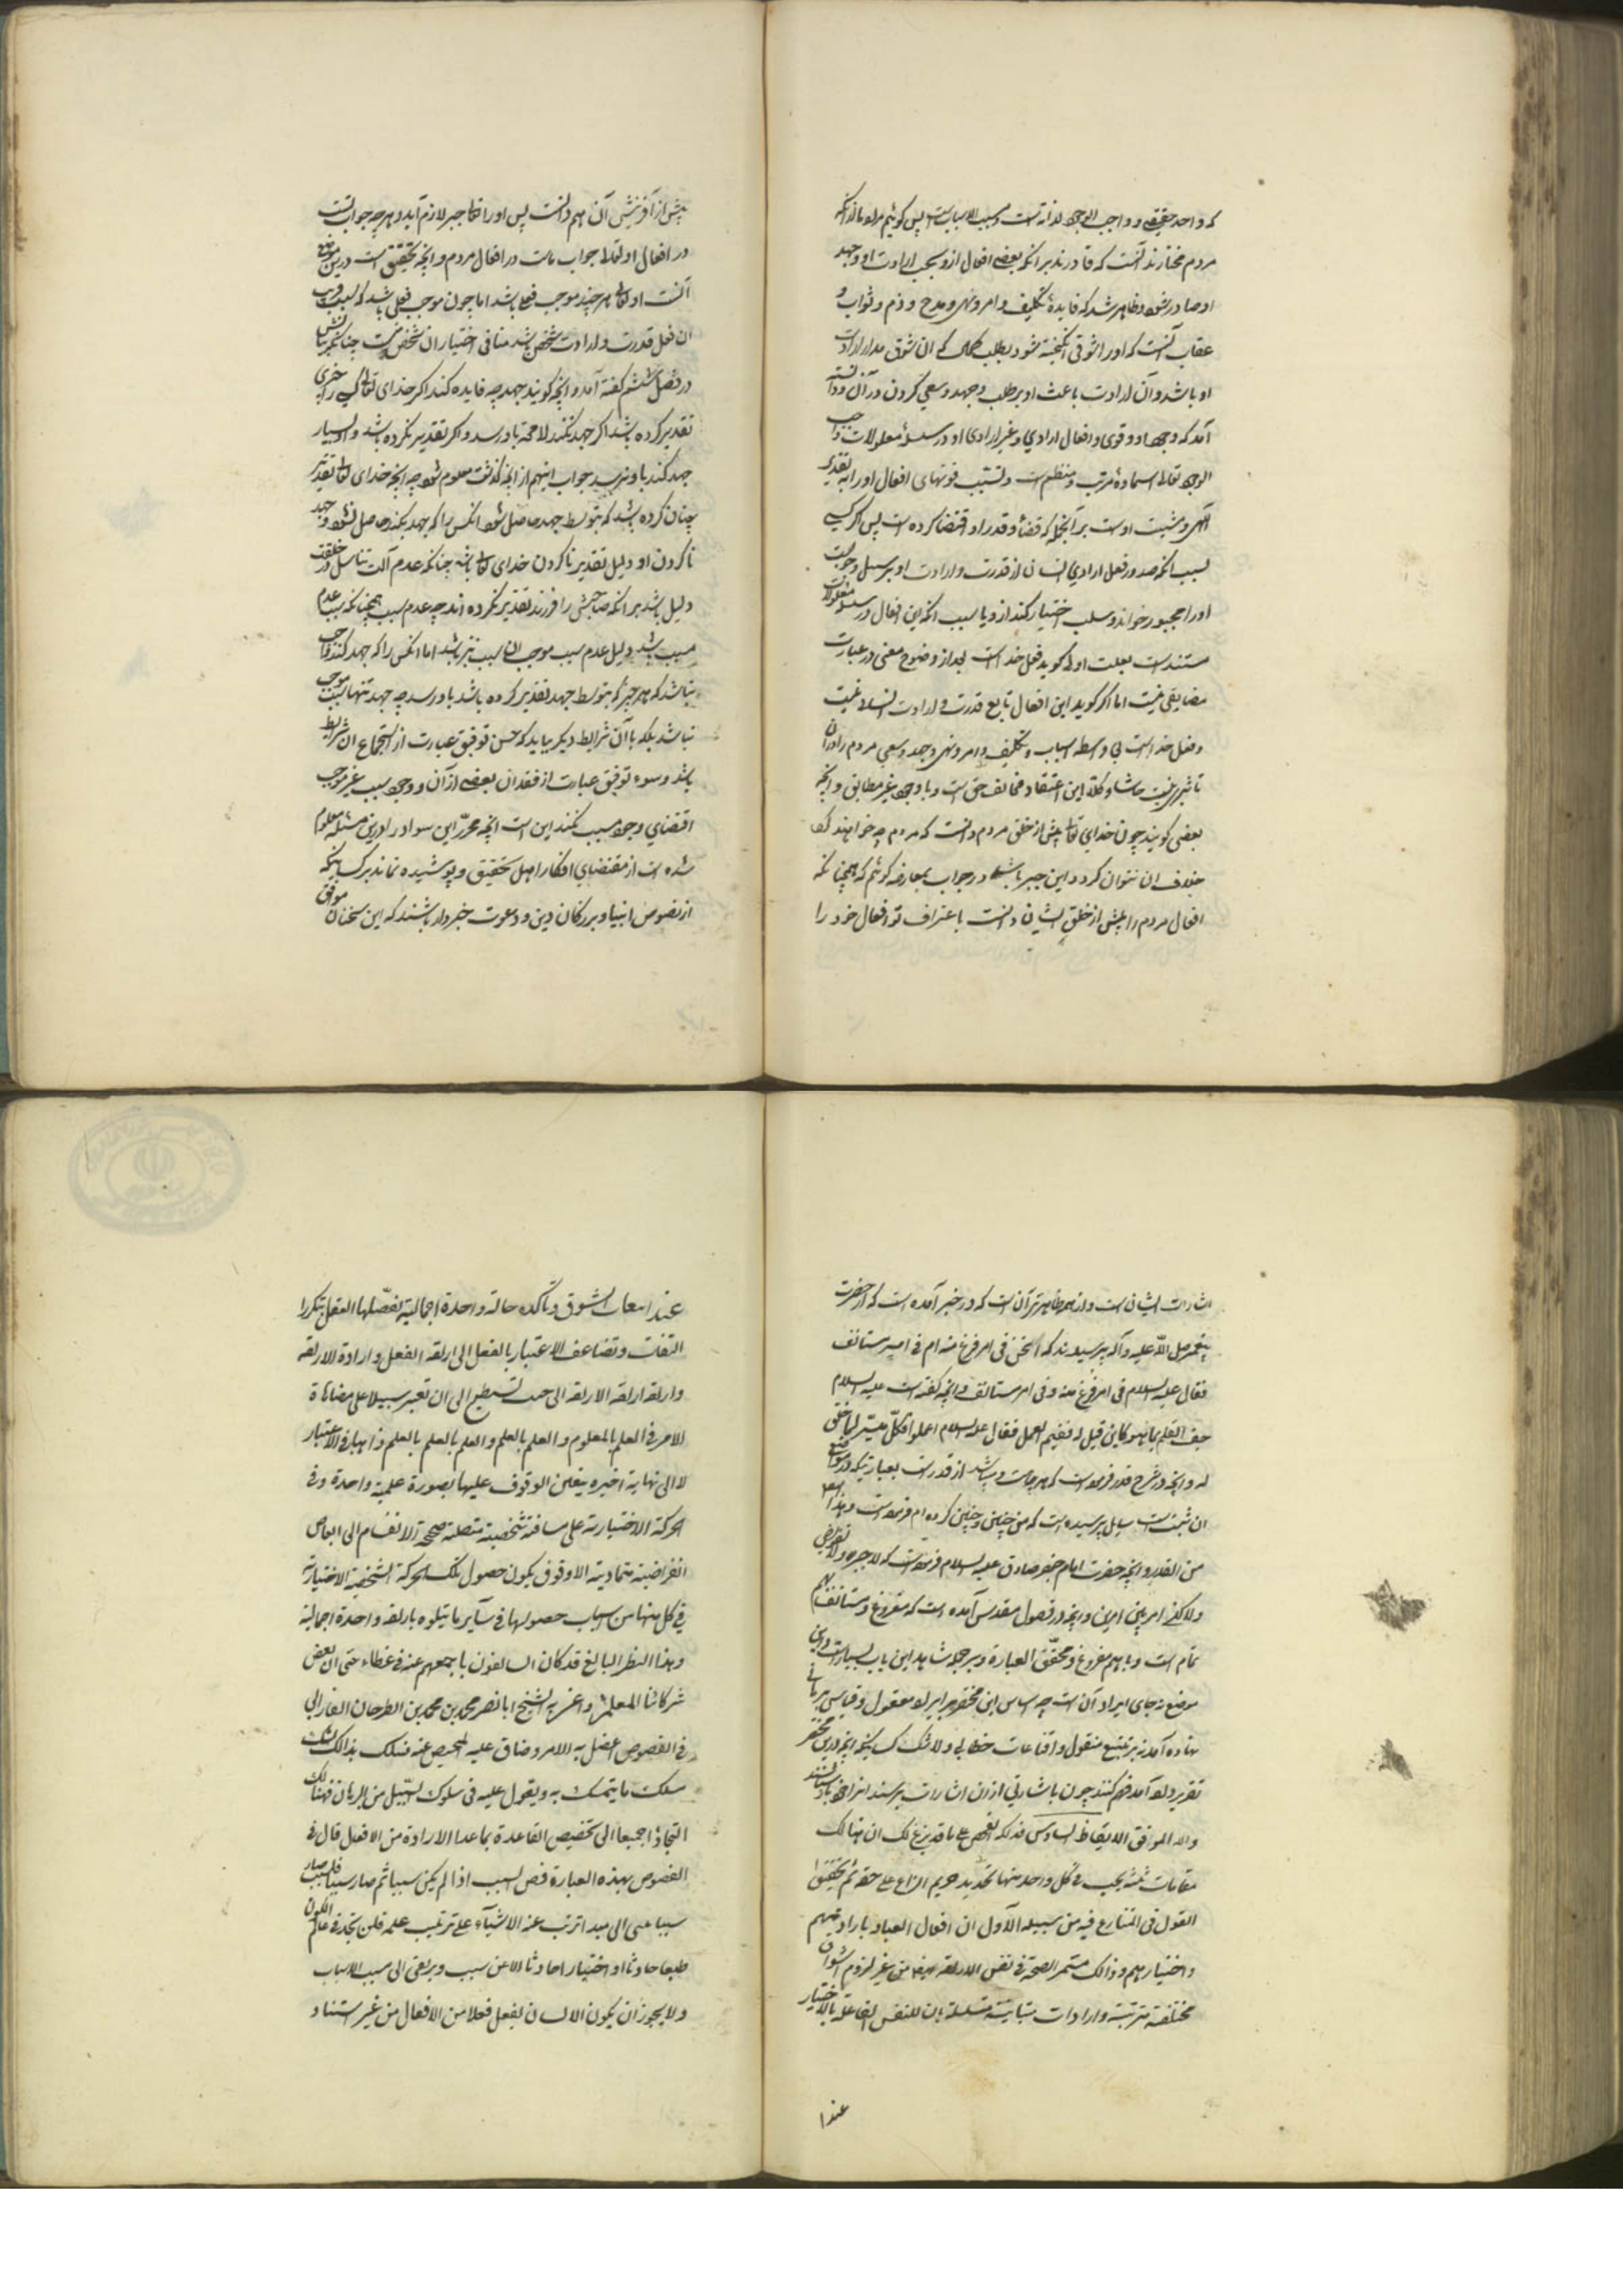 که واحد حقیقی و واجب الوجود لذاته است و مسبب الاسباب است پس گوئیم مراد ما از آنکه
مردم مختارند آنست که قادرند بر آنکه بعضی افعال ازو بحسب ارادت او و جهد
او صادر شود و ظاهر شد که فایدهٔ تکلیف و امر و نهی و مدح و ذم و ثواب و
عقاب آنست که او را شوقی انگیخته شود بطلب کمال که آن شوق مدار ارادت
او باشد و آن ارادت باعث او بر طلب و جهد و سعی کردن در آن و دانسته
آمد که وجود او و قوی و افعال ارادی و غیر ارادی او در سلسلهٔ معلولات واجب
الوجود تعالی اسماؤه مرتب و منتظم است و تشبب فوتهای افعال او را بتقدیر
الهی و مشیت اوست بر آنجمله که قضا و قدر او اقتضا کرده است پس اگر کسی
بسبب آنکه صدور فعل ارادی انسان از قدرت و ارادت او بر سبیل وجوبست
او را مجبور خواند و سلب اختیار کند ازو یا بسبب آنکه این افعال در سلسلهٔ معلولات
مستند است بعلت اولی گوید فعل خداست بعد از وضوح معنی در عبارت
مضایقتی نیست اما اگر گوید این افعال تابع قدرت و ارادت انسان نیست
و فعل خداست بی واسطه اسباب و تکلیف و امر و نهی و جهد و سعی مردم را در آن
تاثیری نیست حاشا و کلا این اعتقاد مخالف حق است و با وجود غیر مطابق و آنچه
بعضی گویند چون خدای تعالی پیش از خلق مردم دانست که مردم چه خواهند کرد
خلاف آن نتوان کرد و این جبر باشد در جواب بمعارضه گوئیم که همچنانکه
افعال مردم را پیش از خلق ایشان دانست باعتراف تو افعال خود را
پیش از آفرینش آن هم دانست پس او را تعالی جبر لازم آید و هرچه جواب تست
در افعال او تعالی جواب ماست در افعال مردم و آنچه تحقیق است درین موضع
آنست او تعالی هر چند موجب فعل باشد اما چون موجب فعلی باشد که سبب قریب
آن فعل قدرت و ارادت شخصی باشد منافی اختیار آن شخص نیست چنانکه
در فصل ششم گفته آمد و آنچه گویند جهد چه فایده کند اگر خدای تعالی کسی را خیری
تقدیر کرده باشد اگر جهد نکند لا محه باو رسد و اگر تقدیر نکرده باشد و او بسیار
جهد کند باو نرسد جواب اینهم از آنچه گذشت معلوم شود چه آنچه خدای تعالی تقدیر
چنان کرده باشد که بتوسط جهد حاصل شود آنکس را که جهد نکند حاصل نشود و جهد
ناکردن او دلیل تقدیر ناکردن خدای تعالی باشد چنانکه عدم آلت تناسل در خلقت
دلیل باشد بر آنکه صاحبش را فرزند تقدیر نکرده اند چه عدم سبب همچنانکه سبب عدم
مسبب باشد دلیل عدم سبب موجب آن سبب نیز باشد اما آنکس را که جهد کند واجب
نباشد که هر چیز که بتوسط جهد تقدیر کرده باشد باو رسد چه جهد تنها سبب موجب
نباشد بلکه با آن شرایط دیگر بباید که حسن توفیق عبارت از استجماع آن شرایط
باشد و سوء توفیق عبارت از فقدان بعضی از آن و وجود سبب غیر موجب
اقتضای وجود مسبب نکند این است آنچه محرر این سواد را درین مسئله معلوم
شده است از مقتضای افکار اهل تحقیق و پوشیده نماند بر کسانیکه
از نصوص انبیا و بزرگان دین و دعوت خبردار باشند که این سخنان موافق
اشارات ایشانست و از همه ظاهرتر آن است که در خبر آمده است که از حضرت
پیغمبر صلی الله علیه وآله پرسیدند که انحن فی امر فرغ منه ام فی امر مستانف
فقال علیه السلام فی امر فرغ منه و فی امر مستانف و آنچه گفته است علیه السلام
جف القلم بما هو کاین قیل له ففیم العمل فقال علیه السلام اعملوا فکل میسر لما خلق
له و آنچه در شرح قدر فرموده است که هرچه هست و باشد از قدر است بعبارتیکه در موضع
آن ثبت است سایل پرسیده است که من چنین و چنین کرده ام فرموده است وهذا ایضا
من القدر و آنچه حضرت امام جعفر صادق علیه السلام فرموده است که لا جبر ولا تفویض
ولاکن امر بین امرین و آنچه در فصول مقدس آمده است که مفروغ و مستانف هم
تمام است و با هم مفروغ و محقق العبارة و بر جمله شاهد این باب بسیار است و این
موضع نه جای ایراد آن است چه اساس این مختصر بر ایراد معقول و قیاس برهانی
نهاده آمد نه بر تتبع منقول و اقناعات خطابی و لا شک کسانیکه آنچه درین مختصر
تقریر داده آمد فهم کنند چون باشارتی از آن اشارات برسند انرا خود باز دانند
والله الموفق الایقاظ السادس فذلکة الفحص علی ما قد بزغ لک ان هنالک
مقامات ثلثة یجب فی کل واحد منها تحدید حریم النزاع علی حقه ثم تحقیق
القول فی المتنازع فیه من سبیله الاول ان افعال العباد بارادتهم
واختیارهم وذالک مستمر الصحة فی نفس الارادة ایضا من غیر لزوم اشواق
مختلفة مترتبة وارادات متباینة متسلسلة بان للنفس الفاعلة بالاختیار
عندا
عند انبعاث الشوق وتاکده حالة واحدة اجمالیة یفصلها العقل بتکرر
التفات وتضاعف الاعتبار بالفعل الی ارادة الفعل وارادة الارادة
وارادة ارادة الارادة الی حیث تستطیع الی ان تعبر سبیلا علی مضاهاة
الامر فی العلم بالمعلوم والعلم بالعلم والعلم بالعلم بالعلم ذاهبا فی الاعتبار
لا الی نهایة اخیرة یتعین الوقوف علیها بصورة علمیة واحدة وفی
الحرکة الاختیاریة علی مسافة شخصیة متصلة صحیحة الانقسام الی ابعاض
انفراضیة متمادیة الاوقوف یکون حصول تلک الحرکة الشخصیة الاختیاریة
فی کل منها من اسباب حصولها فی سایر ما یتلوه بارادة واحدة اجمالیة
وهذا النظر البالغ قد کان السابقون باجمعهم عنه فی غطاء حتی ان بعض
شرکائنا المعلمین واعنی به الشیخ ابا نصر محمد بن محمد بن الطرخان الفارابی
فی الفصوص اعضل به الامر وضاق علیه المحیص عنه فسلک بذالک
مسلک ما یتمسک به ویعول علیه فی سلوک السبیل من البرهان فهنالک
التجاؤا جمیعا الی تخصیص القاعدة بما عدا الارادة من الافعال قال فی
الفصوص بهذه العبارة فص السبب اذا لم یکن سببا ثم صار سببا فلسبب صار
سببا وینتهی الی مبدا ترتب عنه الاشیاء علی ترتیب علمه فلن تجد فی عالم الکون
طبعا حادثا او اختیارا حادثا الا عن سبب ویرتقی الی مسبب الاسباب
ولا یجوز ان یکون الانسان یفعل فعلا من الافعال من غیر استناد